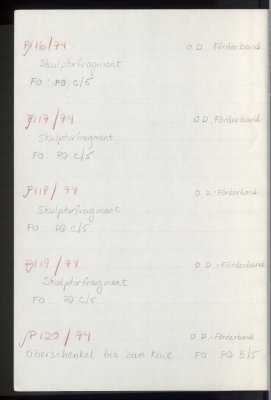 P116/74 O.D. Förderband
Skulpturfragment
FO: PQ C/5
P117/74 O.D. Förderband
Skulpturfragment
FO PQ C/5
P118/74 O.D. Förderband
Skulpturfragment
FO: PQ C/5
P119/74 O.D. - Förderband
Skulpturfragment
FO: PQ C/5
P120/74 O.D. - Förderband
Oberschenkel bis zum Knie FO PQ B/5